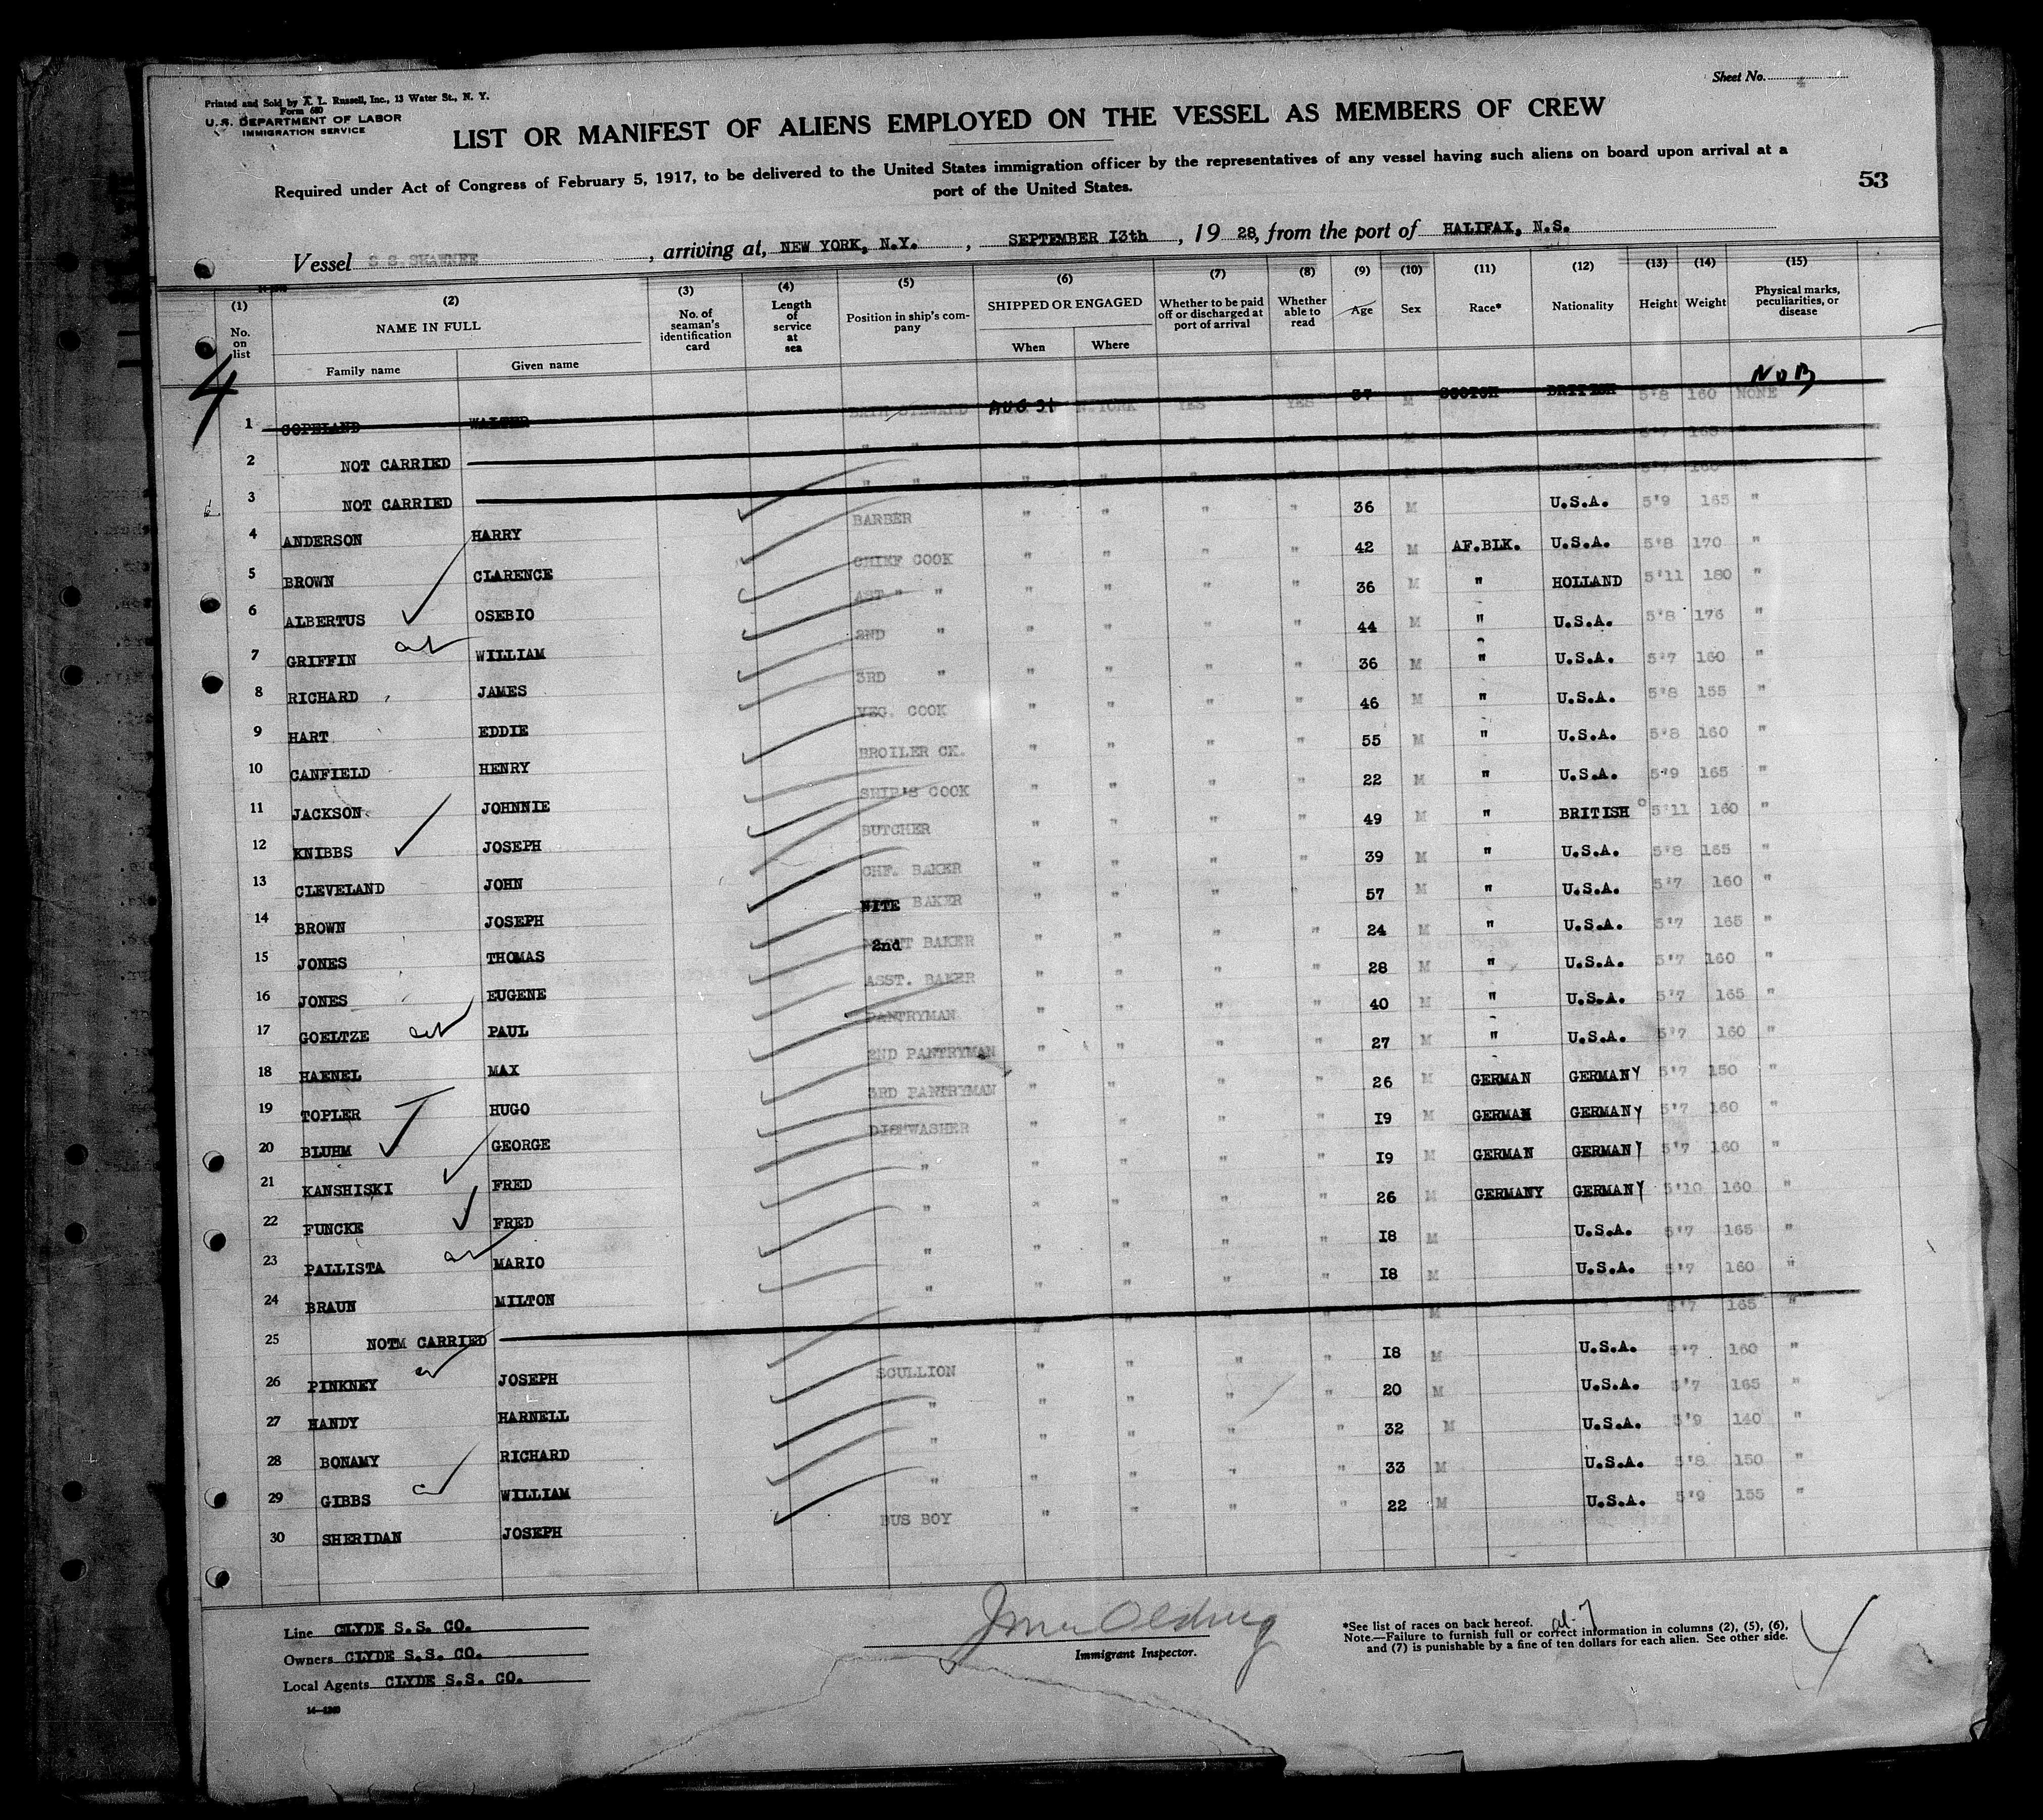 Sheet No. 4
Printed and Sold by A. L. Russell, Inc., 13 Water St., N. Y.
Form 680
U.S. DEPARTMENT OF LABOR
IMMIGRATION SERVICE
LIST OR MANIFEST OF ALIENS EMPLOYED ON THE VESSEL AS MEMBERS OF CREW
Required under Act of Congress of February 5, 1917, to be delivered to the United States immigration officer by the representatives of any vessel having such aliens on board upon arrival at a
port of the United States.
53
Vessel S S. SHAWNEE, arriving at, NEW YORK, N.Y., SEPTEMBER 13th, 19 28, from the port of HALIFAX, N.S.
(1) (2) (3) (4) (5) (6) (7) (8) (9) (10) (11) (12) (13) (14) (15)
No. on list NAME IN FULL No. of seaman's identification card Length of service at sea Position in ship's company SHIPPED OR ENGAGED Whether to be paid off or discharged at port of arrival Whether able to read Age Sex Race* Nationality Height Weight Physical marks, peculiarities, or disease
Family name Given name When Where
4 NOB
1 COPELAND WALTER BATH STEWARD AUG 31 N.YORK YES YES 37 M SCOTCH BRITISH 5'8 160 NONE
2 NOT CARRIED " " " " " " M 5'7 165 "
3 NOT CARRIED " " " " " " M 5'7 160 "
4 ANDERSON HARRY BARBER " " " " 36 M U.S.A. 5'9 165 "
5 BROWN CLARENCE CHIEF COOK " " " " 42 M AF.BLK. U.S.A. 5'8 170 "
6 ALBERTUS OSEBIO AST. " " " " " " 36 M " HOLLAND 5'11 180 "
7 GRIFFIN WILLIAM 2ND " " " " " 44 M " U.S.A. 5'8 176 "
8 RICHARD JAMES 3RD " " " " " 36 M " U.S.A. 5'7 160 "
9 HART EDDIE VEG. COOK " " " " 46 M " U.S.A. 5'8 155 "
10 CANFIELD HENRY BROILER CK. " " " " 55 M " U.S.A. 5'8 160 "
11 JACKSON JOHNNIE SHIP'S COOK " " " " 22 M " U.S.A. 5'9 165 "
12 KNIBBS JOSEPH BUTCHER " " " " 49 M " BRITISH 5'11 160 "
13 CLEVELAND JOHN CHF. BAKER " " " " 39 M " U.S.A. 5'8 165 "
14 BROWN JOSEPH NITE BAKER " " " " 57 M " U.S.A. 5'7 160 "
15 JONES THOMAS 2nd BAKER " " " " 24 M " U.S.A. 5'7 165 "
16 JONES EUGENE ASST. BAKER " " " " 28 M " U.S.A. 5'7 160 "
17 GOELTZE PAUL PANTRYMAN " " " " 40 M " U.S.A. 5'7 165 "
18 HAENEL MAX 2ND PANTRYMAN " " " " 27 M " U.S.A. 5'7 160 "
19 TOPLER HUGO 3RD PANTRYMAN " " " " 26 M GERMAN GERMANY 5'7 150 "
20 BLUHM GEORGE DISHWASHER " " " " 19 M GERMAN GERMANY 5'7 160 "
21 KANSHISKI FRED " " " " " 19 M GERMAN GERMANY 5'7 160 "
22 FUNCKE FRED " " " " " 26 M GERMANY GERMANY 5'10 160 "
23 PALLISTA MARIO " " " " " 18 M U.S.A. 5'7 165 "
24 BRAUN MILTON " " " " " 18 M U.S.A. 5'7 160 "
25 NOTM CARRIED " " " " " M 5'7 165 "
26 PINKNEY JOSEPH SCULLION " " " " 18 M U.S.A. 5'7 160 "
27 HANDY HARNELL " " " " " 20 M U.S.A. 5'7 165 "
28 BONAMY RICHARD " " " " " 32 M U.S.A. 5'9 140 "
29 GIBBS WILLIAM " " " " " 33 M U.S.A. 5'8 150 "
30 SHERIDAN JOSEPH BUS BOY " " " " 22 M U.S.A. 5'9 155 "
Line CLYDE S.S. CO.
Owners CLYDE S.S. CO.
Local Agents CLYDE S.S. CO.
14—1240
Immigrant Inspector.
*See list of races on back hereof.
Note.—Failure to furnish full or correct information in columns (2), (5), (6),
and (7) is punishable by a fine of ten dollars for each alien. See other side.
4